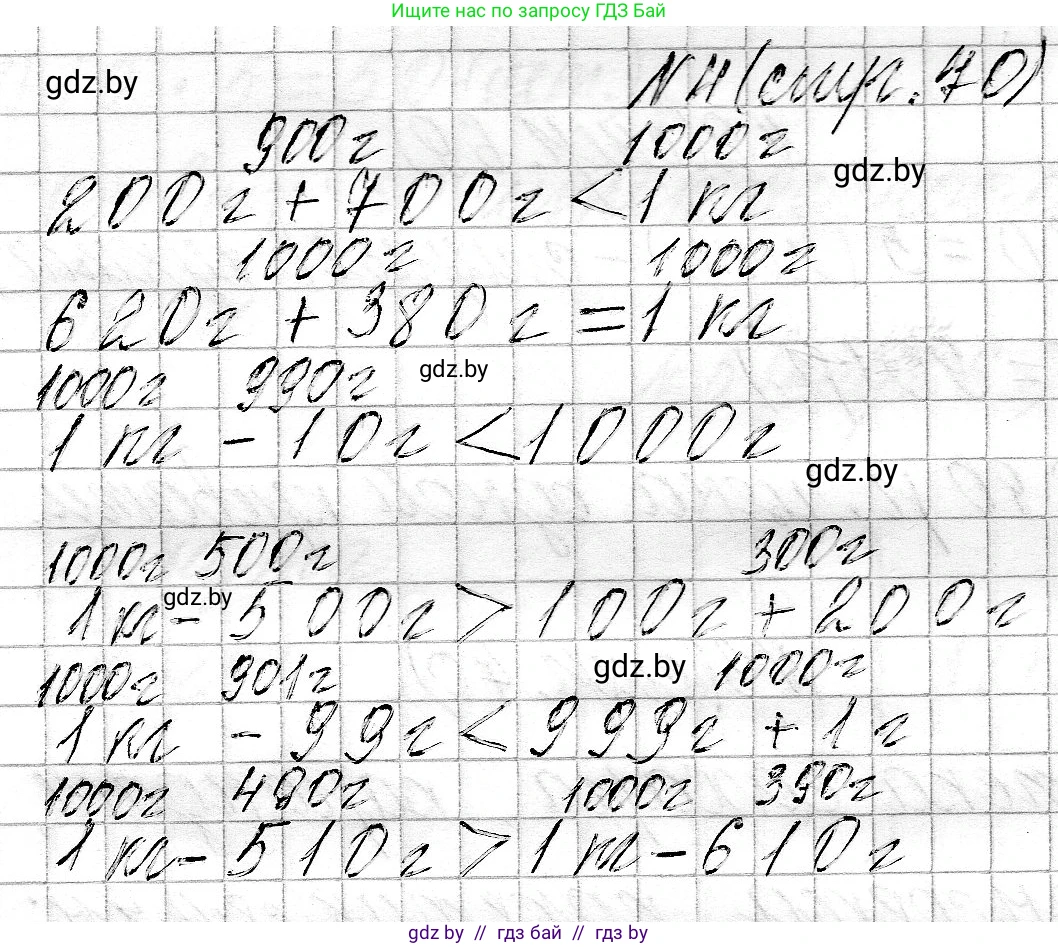 Ищите нас по запросу ГДЗ Бай
gdz.by
№4 (стр. 70)
900г 1000г
gdz.by
200г + 700г < 1 кг
1000г 1000г
620г + 380г = 1 кг
1000г 990г
gdz.by
1 кг - 10г < 1000г
gdz.by
1000г 500г 300г
gdz.by
1 кг - 500г > 100г + 200г
1000г 901г 1000г
gdz.by
1 кг - 99г < 999г + 1г
1000г 490г 1000г 390г
1 кг - 510г > 1 кг - 610г
gdz.by // гдз бай // гдз by